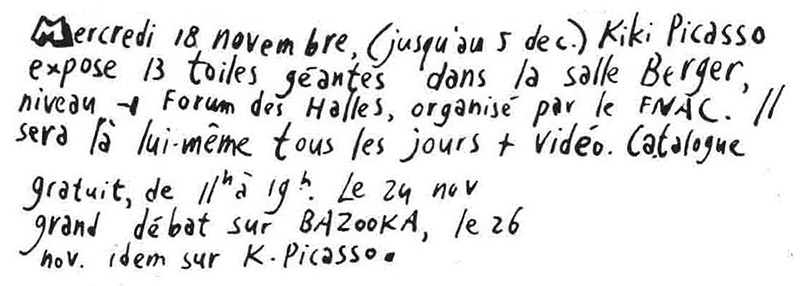 Mercredi 18 novembre, (jusqu'au 5 dec.) Kiki Picasso
expose 13 toiles géantes dans la salle Berger,
niveau -1 Forum des Halles, organisé par le FNAC. Il
sera là lui-même tous les jours + vidéo. Catalogue
gratuit, de 11h à 19h. Le 24 nov
grand débat sur BAZOOKA, le 26
nov. idem sur K. Picasso.